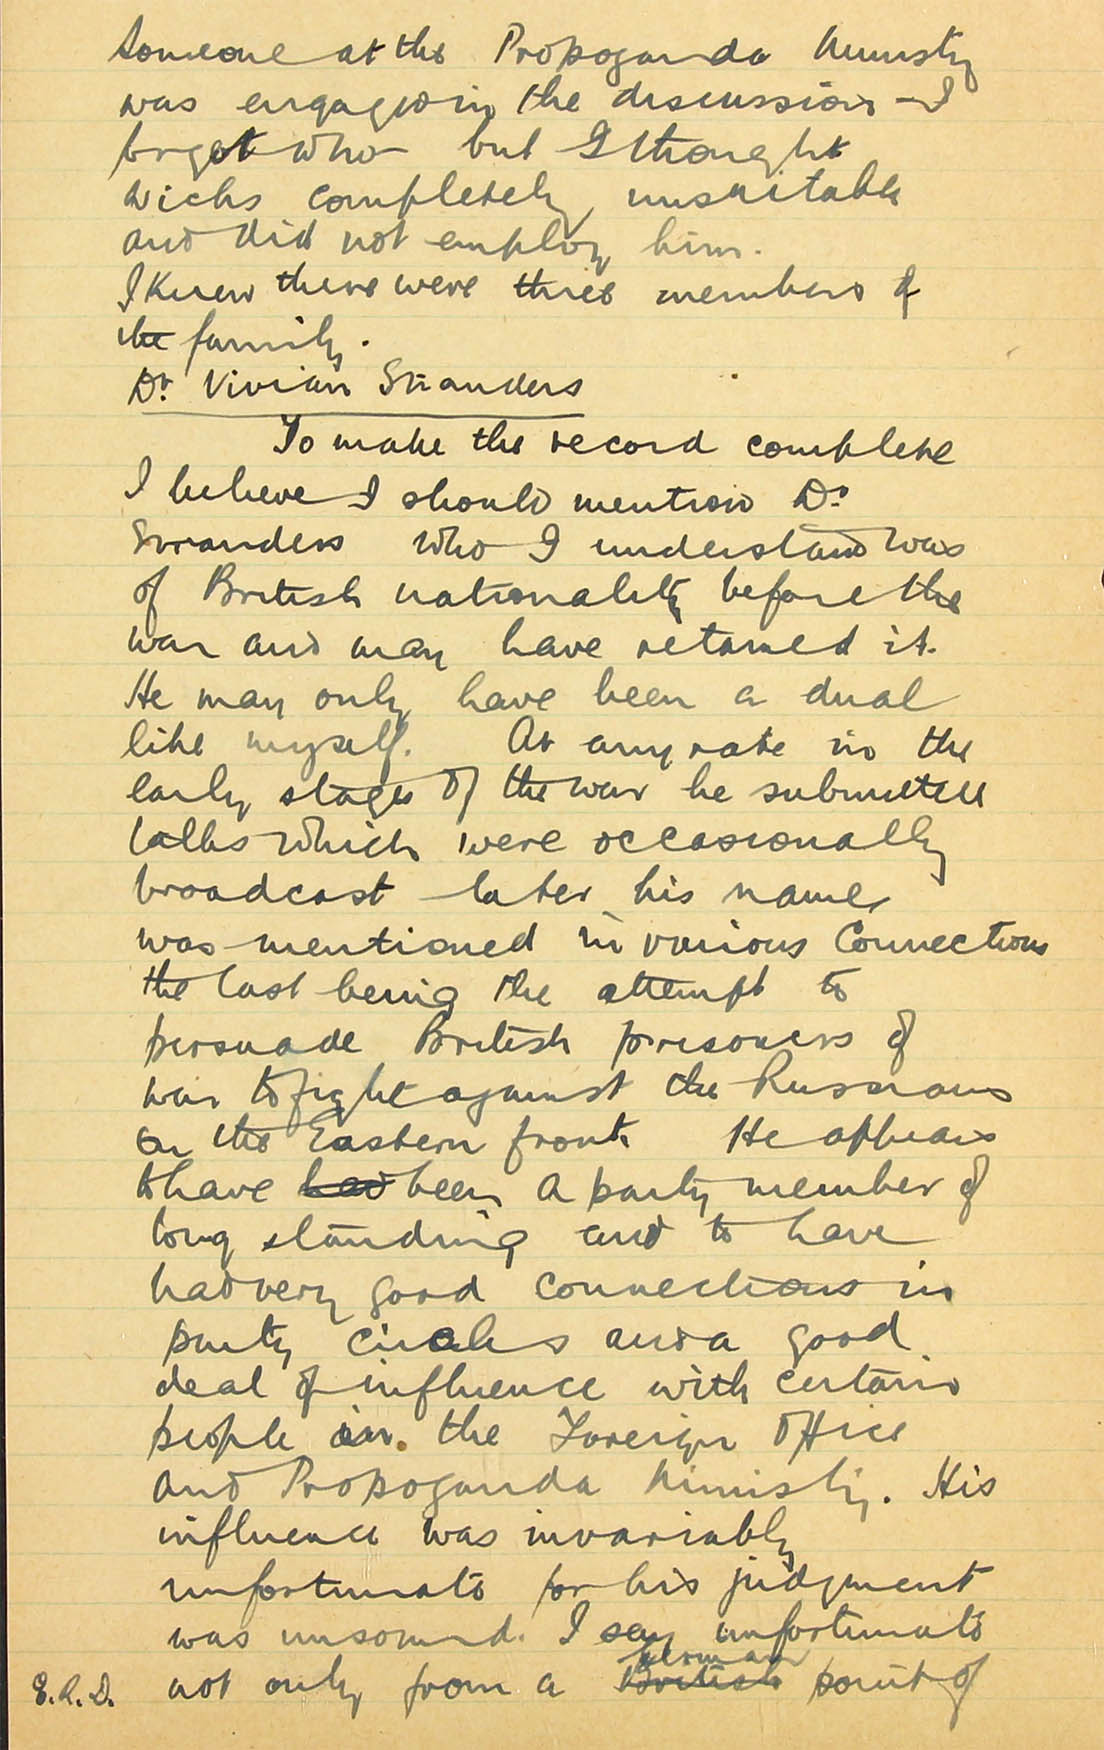 Someone at the Propoganda Ministry
was engaged in the discussion – I
forget who but I thought
Wicks completely unsuitable
and did not employ him.
I knew there were three members of
the family.
Dr. Vivian Stranders
To make the record complete
I believe I should mention Dr.
Stranders who I understand was
of British nationality before the
war and may have retained it.
He may only have been a dual
like myself. At any rate in the
early stages of the war he submitted
talks which were occasionally
broadcast later his name
was mentioned in various connections
the last being the attempt to
persuade British prisoners of
war to fight against the Russians
on the Eastern front He appears
to have had been a party member of
long standing and to have
had very good connections in
party circles and a good
deal of influence with certain
people in the Foreign Office
and Propoganda Ministry. His
influence was invariably
unfortunate for his judgment
was unsound. I say unfortunate
German
E.R.D. not only from a British point of